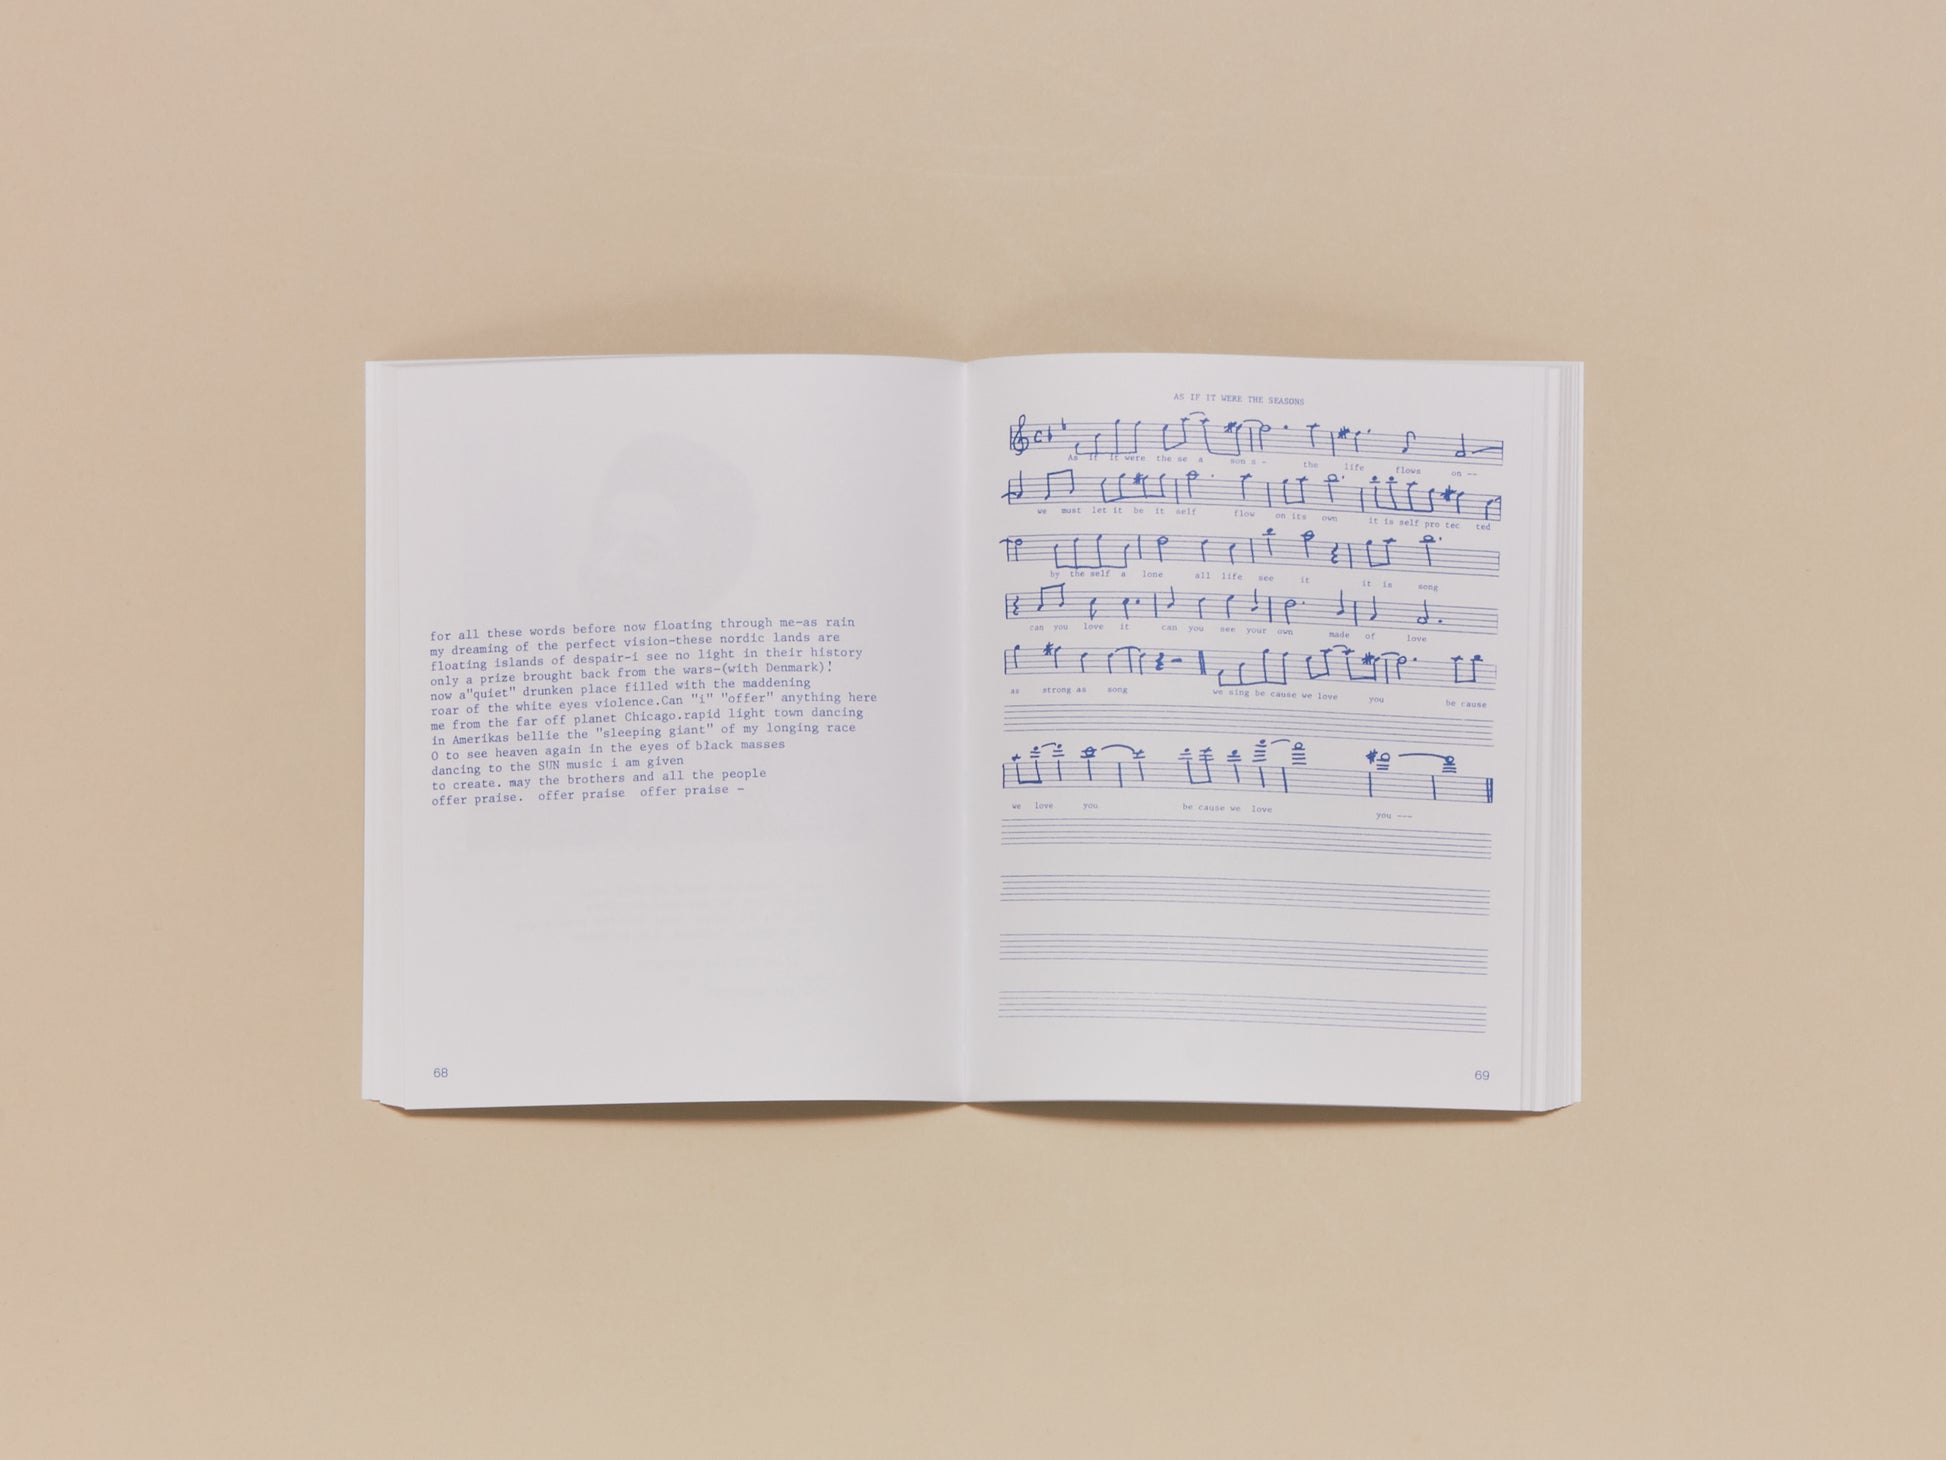 for all these words before now floating through me-as rain
my dreaming of the perfect vision-these nordic lands are
floating islands of despair-i see no light in their history
only a prize brought back from the wars-(with Denmark)!
now a"quiet" drunken place filled with the maddening
roar of the white eyes violence.Can "i" "offer" anything here
me from the far off planet Chicago.rapid light town dancing
in Amerikas bellie the "sleeping giant" of my longing race
O to see heaven again in the eyes of black masses
dancing to the SUN music i am given
to create. may the brothers and all the people
offer praise.  offer praise  offer praise -
68
AS IF IT WERE THE SEASONS
As if it were the se a son s - the life flows on --
we must let it be it self flow on its own it is self pro tec ted
by the self a lone all life see it it is song
can you love it can you see your own made of love
as strong as song we sing be cause we love you be cause
we love you be cause we love you ---
69